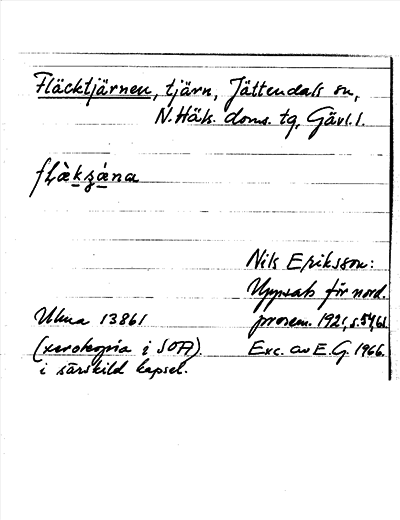 Fläcktjärnen, tjärn, Jättendals sn,
N. Häls. doms. tg, Gävl. l.
flæ̀kʂæ̀na
Nils Eriksson:
Uppsats för nord.
Ulma 13861 prosem. 192, s. 59, 61
(xerokopia i SOA). Exc. av E. G. 1966.
i särskild kapsel.